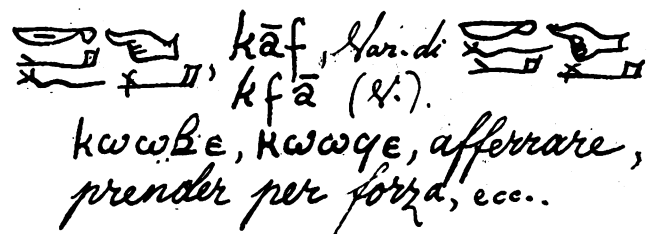 , kāf, Var. di
kfā (V.).
ⲕⲱⲱⲃⲉ, ⲕⲱⲱϥⲉ, afferrare,
prender per forza, ecc..